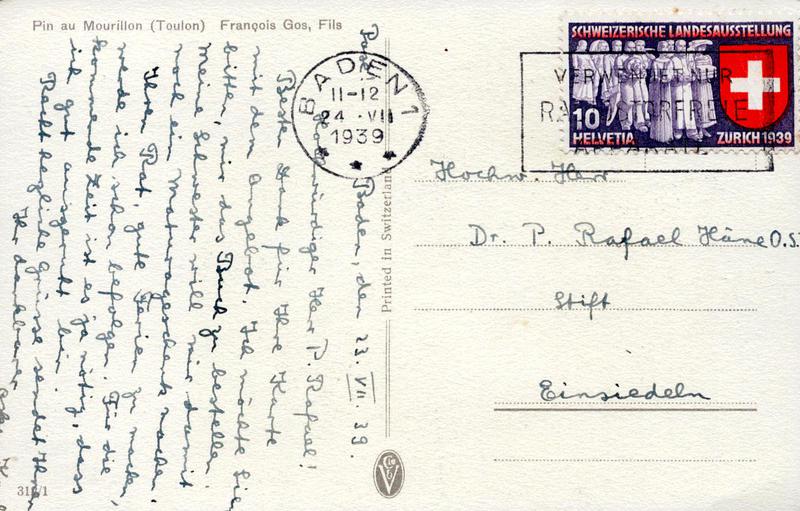 Pin au Mourillon (Toulon) François Gos, Fils
Baden, den 23. VII. 39.
Hochwürdiger Herr P. Rafael!
Besten Dank für Ihre Karte
mit dem Angebot. Ich möchte Sie
bitten, mir das Buch zu bestellen.
Meine Schwester will mir damit
noch ein Maturageschenk machen.
Ihren Rat, gute Ferien zu machen,
werde ich schon befolgen. Für die
kommende Zeit ist es ja nötig, dass
ich gut ausgeruht bin.
Recht herzliche Grüsse sendet Ihnen
Ihr dankbarer
311/1
Printed in Switzerland
BADEN 1
11-12
24.VII
1939
VERWENDET NUR
SCHWEIZERISCHE LANDESAUSSTELLUNG
10
HELVETIA
ZURICH 1939
Hochw. Herr
Dr. P. Rafael Häne O.S.
Stift
Einsiedeln